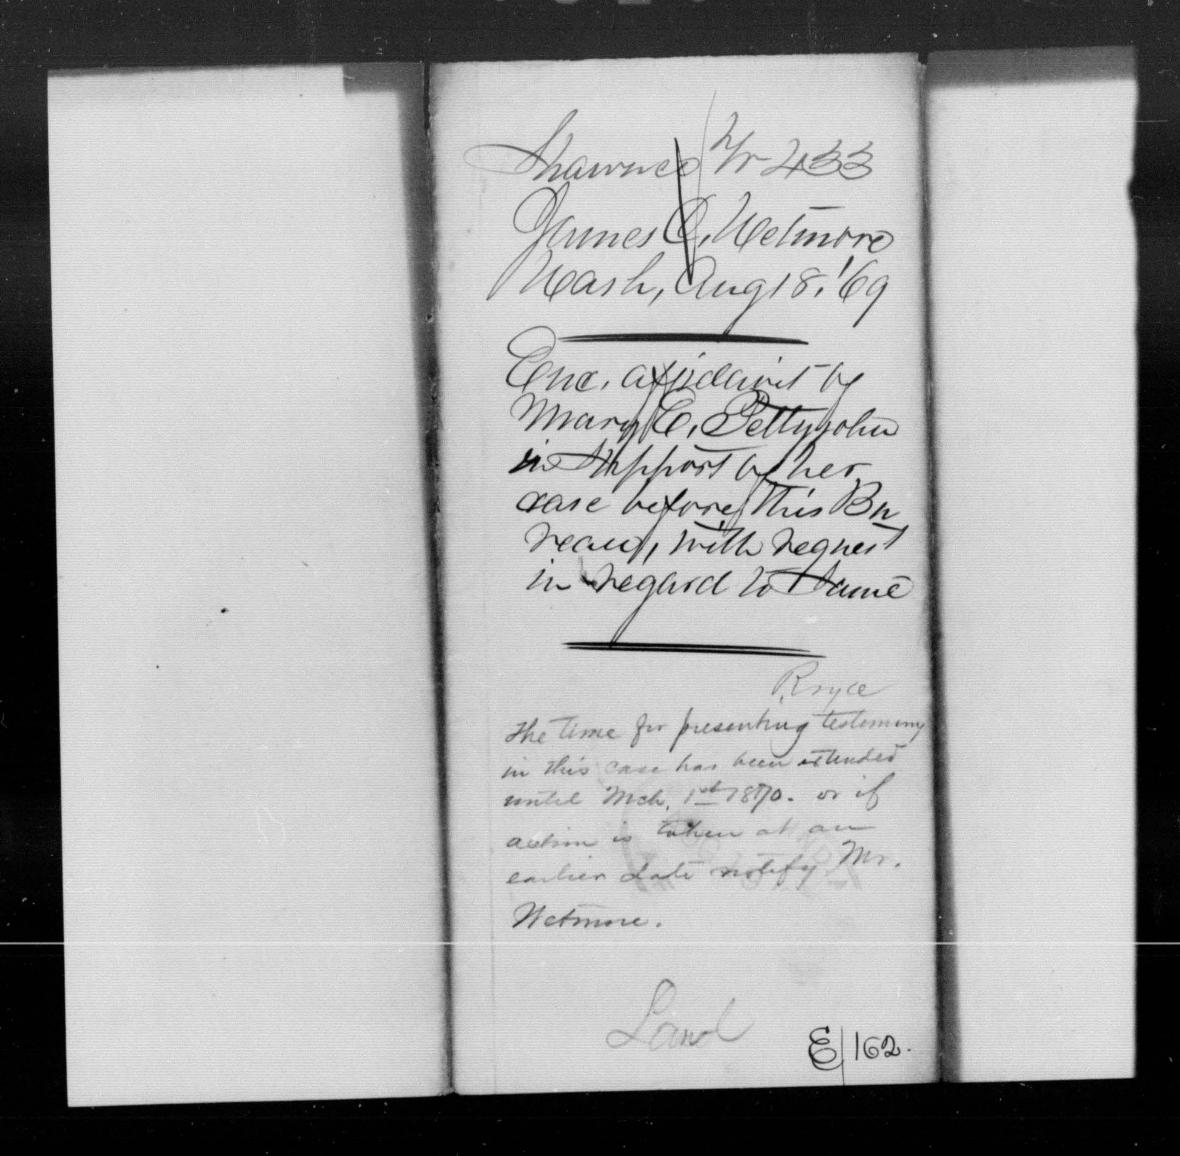 Shawnee W 433
James C. Wetmore
Wash, Aug 18, '69
Enc. affidavit by
Mary C. Pettyjohn
in support of her
case before this Bu
reau, with request
in regard to same
Royce
The time for presenting testimony
in this case has been extended
until Mch. 1st 1870. or if
action is taken at an
earlier date notify Mr.
Wetmore.
Land
E/162.